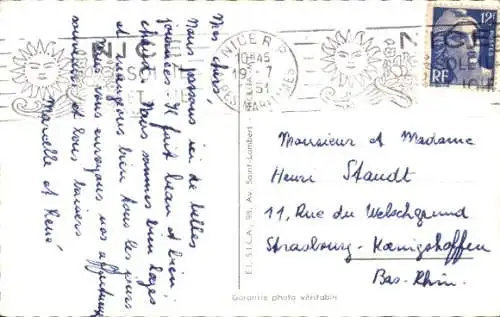 Mes chers,
Nous passons ici de belles
journées. Il fait beau et bien
chaud. Nous sommes bien logés
et mangeons bien tous les jours
Nous vous envoyons nos affectueux
et bons baisers
Marcelle et René
NICE R.P.
10H45
19-7
51
ALPES MARITIMES
NICE
12F
RF
Monsieur et Madame
Henri Staudt
11, Rue du Welschgrund
Strasbourg-Kœnigshoffen
Bas-Rhin.
E.I.S.I.C.A., 98, Av. Saint-Lambert
Garantie photo véritable